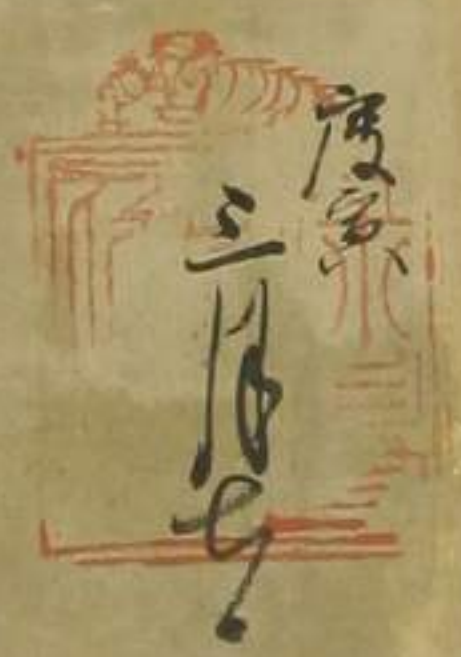 庚寅
三月七日